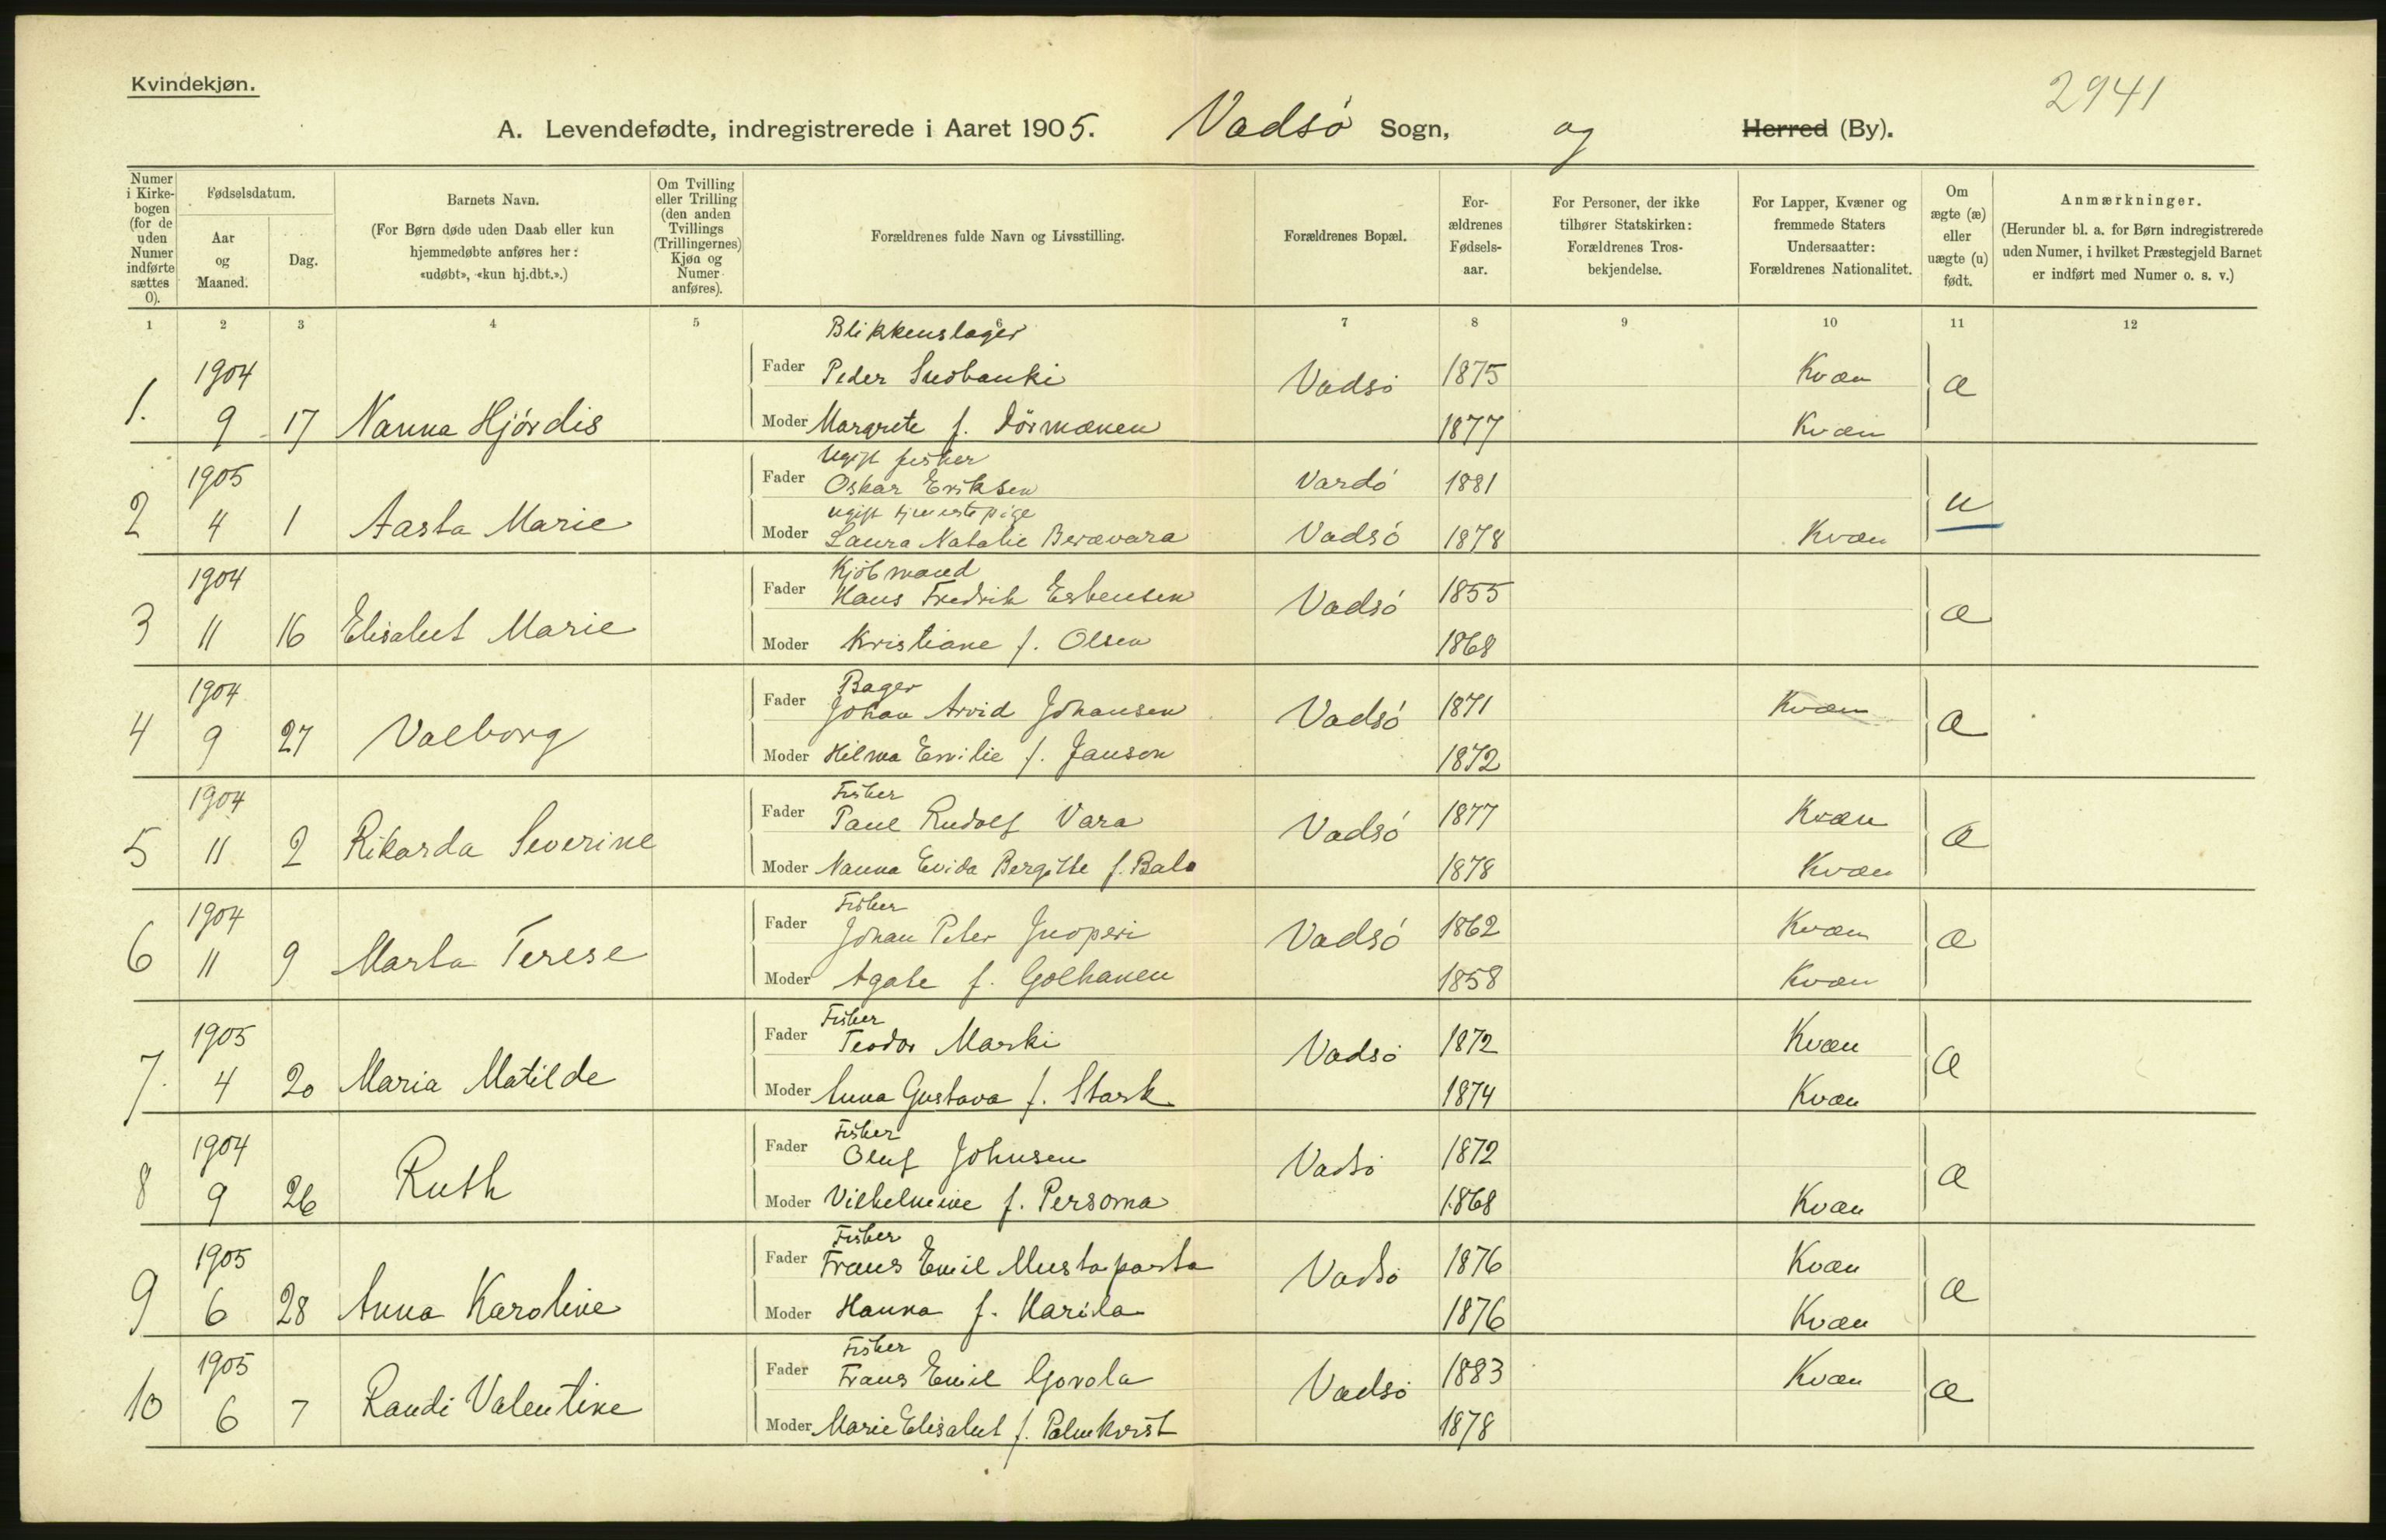 Kvindekjøn.
2941
A. Levendefødte, indregistrerede i Aaret 1905. Vadsø Sogn, og Herred (By).
Numer i Kirkebogen (for de uden Numer indførte sættes 0).
Fødselsdatum.
Aar og Maaned.
Dag.
Barnets Navn.
(For Børn døde uden Daab eller kun hjemmedøbte anføres her: «udøbt», «kun hj.dbt.».)
Om Tvilling eller Trilling (den anden Tvillings (Trillingernes) Kjøn og Numer anføres).
Forældrenes fulde Navn og Livsstilling.
Forældrenes Bopæl.
Forældrenes Fødselsaar.
For Personer, der ikke tilhører Statskirken: Forældrenes Trosbekjendelse.
For Lapper, Kvæner og fremmede Staters Undersaatter: Forældrenes Nationalitet.
Om ægte (æ) eller uægte (u) født.
Anmærkninger.
(Herunder bl. a. for Børn indregistrerede uden Numer, i hvilket Præstegjeld Barnet er indført med Numer o. s. v.)
1 2 3 4 5 6 7 8 9 10 11 12
Blikkenslager
1904 Fader Peder Vadsø 1875 Kvæn æ
1. 9 17 Nanna Hjørdis Moder Margrete f. 1877 Kvæn
Ugift fisker
1905 Fader Oskar Eriksen Vardø 1881 u
ugift tjenestepige
2 4 1 Aasta Marie Moder Laura Natalie Beravara Vadsø 1878 Kvæn
Kjøbmand
1904 Fader Hans Fredrik Esbensen Vadsø 1855 æ
3 11 16 Elisabet Marie Moder Kristiane f. Olsen 1868
Bager
1904 Fader Johan Arvid Johansen Vadsø 1871 Kvæn æ
4 9 27 Valborg Moder Hilma Emilie f. Janson 1872
Fisker
1904 Fader Paul Rudolf Vara Vadsø 1877 Kvæn æ
5 11 2 Rikarda Severine Moder Nanna Evida Bergitte f. Balo 1878 Kvæn
Fisker
1904 Fader Johan Peter Juoperi Vadsø 1862 Kvæn æ
6 11 9 Marta Terese Moder Agate f. Golhanen 1858 Kvæn
Fisker
1905 Fader Teodor Marki Vadsø 1872 Kvæn æ
7. 4 20 Maria Matilde Moder Anna Gustava f. Stark 1874 Kvæn
Fisker
1904 Fader Oluf Johnsen Vadsø 1872 æ
8 9 26 Ruth Moder Vilhelmine f. Persoma 1868 Kvæn
Fisker
1905 Fader Frans Emil Mustaparta Vadsø 1876 Kvæn æ
9 6 28 Anna Karoline Moder Hanna f. Karila 1876 Kvæn
Fisker
1905 Fader Frans Emil Govola Vadsø 1883 Kvæn æ
10 6 7 Randi Valentine Moder Marie Elisabet f. Palmkvist 1878